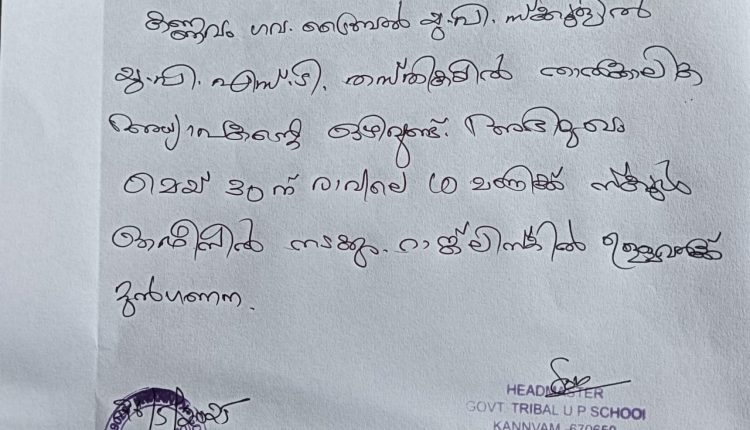 കണ്ണവം ഗവ. ട്രൈബൽ യു.പി. സ്കൂളിൽ
യു.പി. എസ്.ടി. തസ്തികയിൽ താൽക്കാലിക
അധ്യാപകന്റെ ഒഴിവുണ്ട്. അഭിമുഖം
മെയ് 30ന് രാവിലെ 10 മണിക്ക് സ്കൂൾ
ഓഫീസിൽ നടക്കും. റാങ്ക് ലിസ്റ്റിൽ ഉള്ളവർക്ക്
മുൻഗണന.
HEADMASTER
GOVT TRIBAL U P SCHOOl
KANNVAM -670650